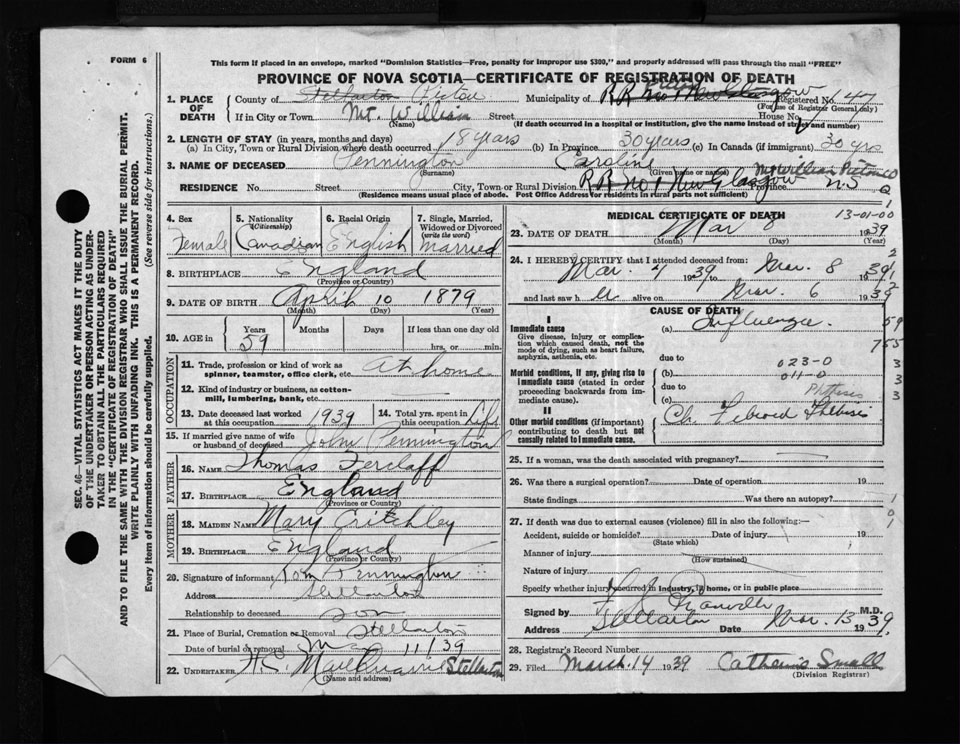 FORM 6
This form if placed in an envelope, marked "Dominion Statistics—Free, penalty for improper use $300," and properly addressed will pass through the mail "FREE"
PROVINCE OF NOVA SCOTIA—CERTIFICATE OF REGISTRATION OF DEATH
1. PLACE OF DEATH
County of Stellarton Pictou Municipality of Pictou R R No 1 New Glasgow Registered No. 147
(For use of Registrar General only)
If in City or Town Mt. William Street House No.
(Name) (If death occurred in a hospital or institution, give the name instead of street and number)
2. LENGTH OF STAY (in years, months and days)
(a) In City, Town or Rural Division where death occurred 18 years (b) In Province 30 years (c) In Canada (if immigrant) 30 yrs
3. NAME OF DECEASED Pennington Caroline
(Surname) (Given name or names)
Mt William Pictou Co
RESIDENCE No. Street City, Town or Rural Division R R No 1 New Glasgow Province N.S
(Residence means usual place of abode. Post Office Address for residents in rural parts not sufficient)
4. Sex Female
5. Nationality (Citizenship) Canadian
6. Racial Origin English
7. Single, Married, Widowed or Divorced (write the word) Married
8. BIRTHPLACE England
(Province or Country)
9. DATE OF BIRTH April 10 1879
(Month) (Day) (Year)
10. AGE in Years Months Days If less than one day old
59 hrs. or min.
OCCUPATION
11. Trade, profession or kind of work as spinner, teamster, office clerk, etc. At home
12. Kind of industry or business, as cotton-mill, lumbering, bank, etc.
13. Date deceased last worked at this occupation 1939
14. Total yrs. spent in this occupation Life
15. If married give name of wife or husband of deceased John Pennington
FATHER
16. NAME Thomas
17. BIRTHPLACE England
(Province or Country)
MOTHER
18. MAIDEN NAME Mary Critchley
19. BIRTHPLACE England
(Province or Country)
20. Signature of informant Pennington
Address Stellarton
Relationship to deceased son
21. Place of Burial, Cremation or Removal Stellarton
Date of burial or removal 11/39
22. UNDERTAKER Stellarton
(Name and address)
MEDICAL CERTIFICATE OF DEATH 13-01-00
23. DATE OF DEATH Mar 8 1939
(Month) (Day) (Year)
24. I HEREBY CERTIFY that I attended deceased from:
Mar. 4 1939 to Mar. 8 1939
and last saw h er alive on Mar. 6 1939
CAUSE OF DEATH
I
Immediate cause
Give disease, injury or complication which caused death, not the mode of dying, such as heart failure, asphyxia, asthenia, etc.
(a) Influenza.
due to
Morbid conditions, if any, giving rise to immediate cause (stated in order proceeding backwards from immediate cause).
(b) 023-0
011-0
due to
(c) Phthisis
II
Other morbid conditions (if important) contributing to death but not causally related to immediate cause.
Ch. Fibroid Phthisis
25. If a woman, was the death associated with pregnancy?
26. Was there a surgical operation? Date of operation 19
State findings Was there an autopsy?
27. If death was due to external causes (violence) fill in also the following:—
Accident, suicide or homicide? Date of injury 19
(State which)
Manner of injury
(How sustained)
Nature of injury
Specify whether injury occurred in industry, in home, or in public place
Signed by M.D.
Address Stellarton Date Mar. 13 1939
28. Registrar's Record Number
29. Filed March 14 1939 Small
(Division Registrar)
SEC. 46—VITAL STATISTICS ACT MAKES IT THE DUTY OF THE UNDERTAKER OR PERSON ACTING AS UNDERTAKER TO OBTAIN ALL THE PARTICULARS REQUIRED IN THE "CERTIFICATE OF REGISTRATION OF DEATH" AND TO FILE THE SAME WITH THE DIVISION REGISTRAR WHO SHALL ISSUE THE BURIAL PERMIT.
WRITE PLAINLY WITH UNFADING INK. THIS IS A PERMANENT RECORD.
Every item of information should be carefully supplied. (See reverse side for instructions.)